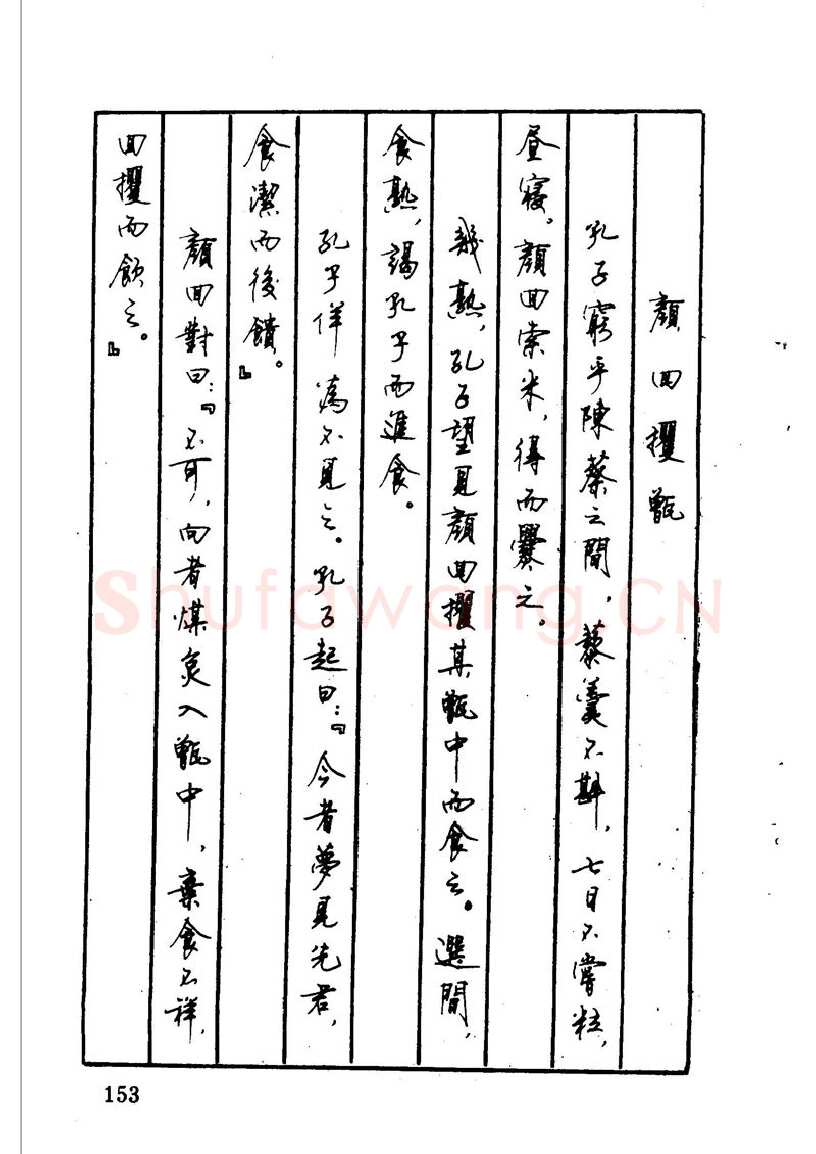 顏回攫甑
孔子窮乎陳蔡之間，藜羹不斟，七日不嘗粒，
晝寢。顏回索米，得而爨之。
幾熟，孔子望見顏回攫其甑中而食之。選間，
食熟，謁孔子而進食。
孔子佯為不見之。孔子起曰：『今者夢見先君，
食潔而後饋。』
顏回對曰：『不可，向者煤炱入甑中，棄食不祥，
回攫而飲之。』
Shufawang.CN
153